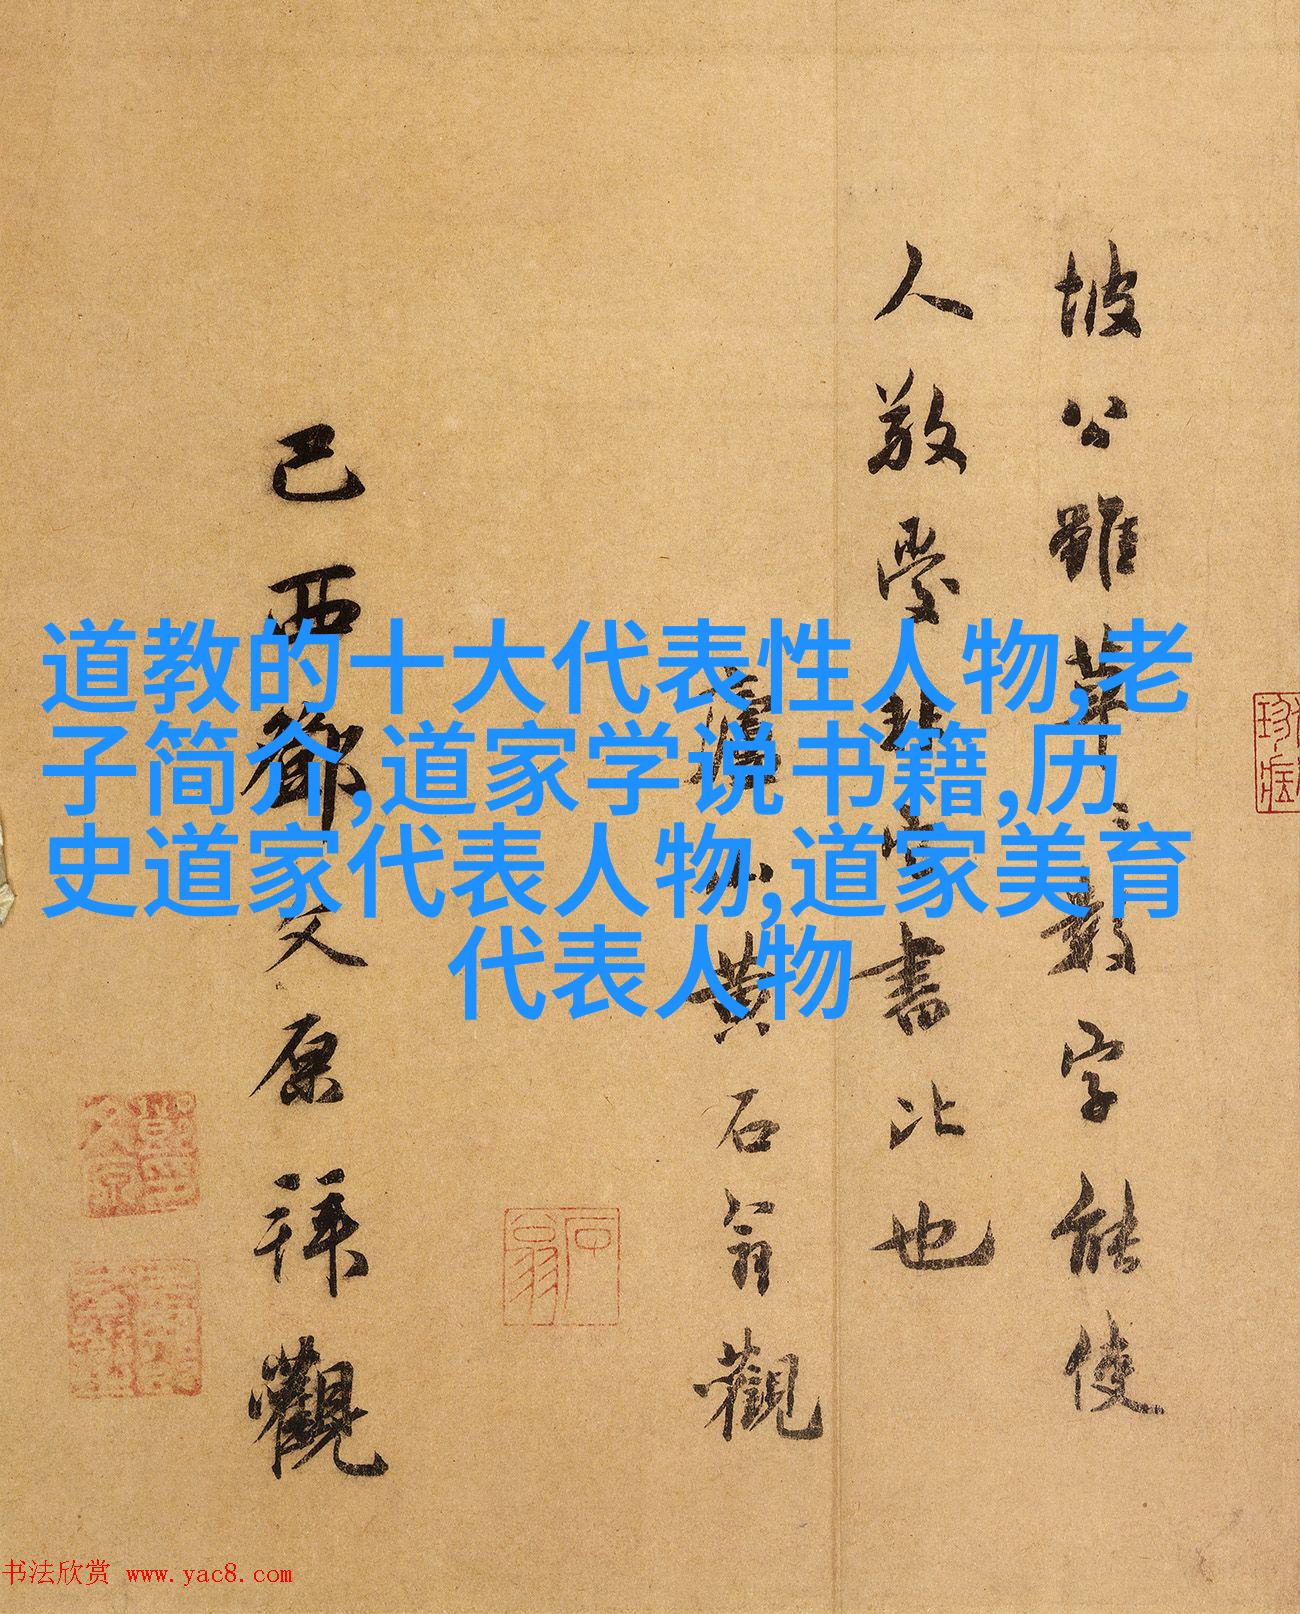 道教的十大代表性人物,老
子简介,道家学说书籍,历
史道家代表人物,道家美育
代表人物
坡公雖草〻數字能使
人敬愛非它書比也
廬山黃石翁觀
石翁
己酉鄧文原拜觀
书法欣赏 www.yac8.com